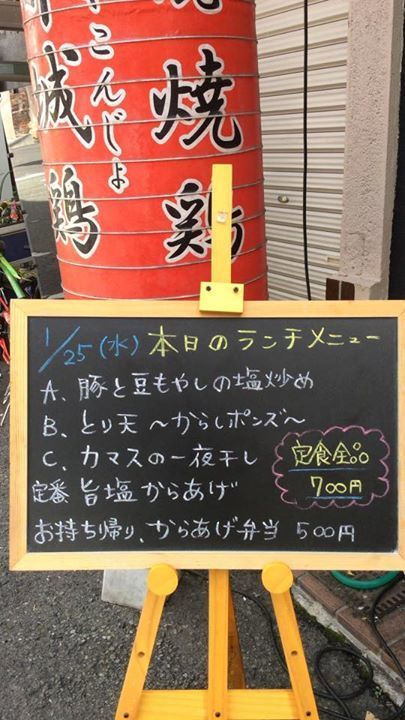 城鶏
こんじょ
焼鶏
1/25(水) 本日のランチメニュー
A、豚と豆もやしの塩炒め
B、とり天 〜からしポンズ〜
C、カマスの一夜干し
定番 旨塩からあげ
定食全品
700円
お持ち帰り、からあげ弁当 500円